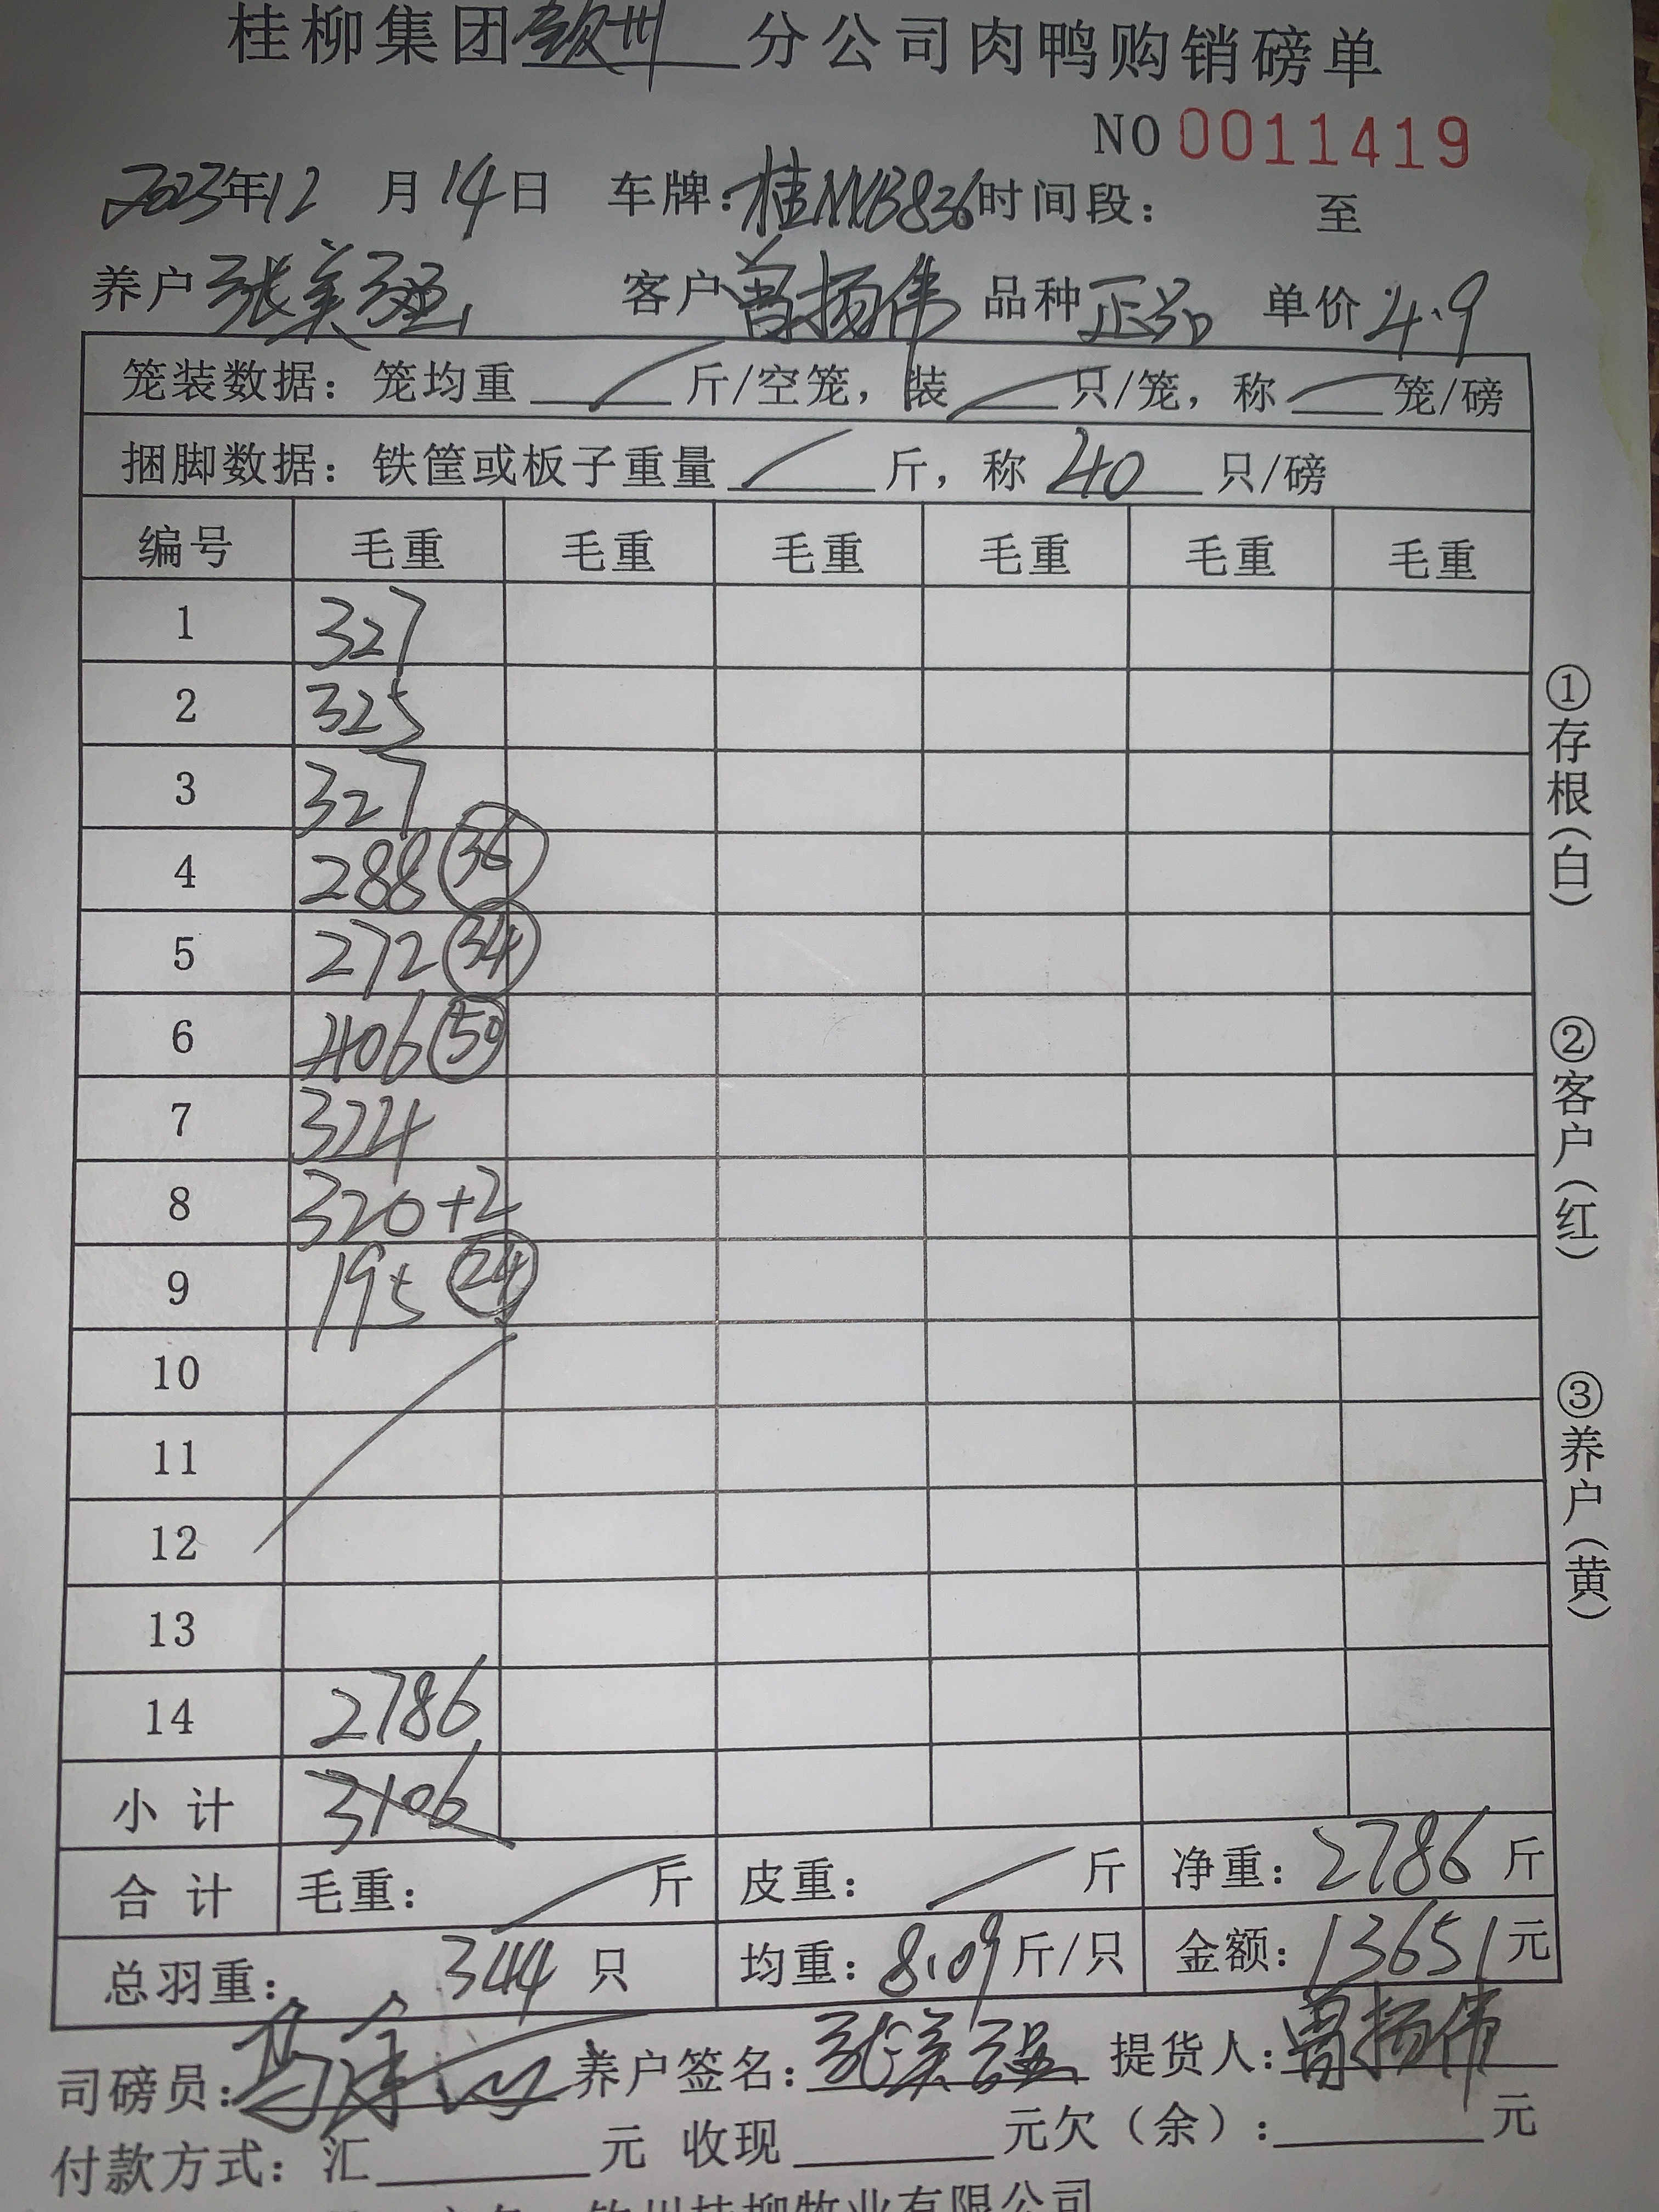 桂柳集团钦州分公司肉鸭购销磅单
NO 0011419
2023年12月14日 车牌:桂NXB836 时间段: 至
养户 张美强 客户 曾扬伟 品种 正品 单价 4.9
笼装数据: 笼均重 / 斤/空笼, 装 / 只/笼, 称 / 笼/磅
捆脚数据: 铁筐或板子重量 / 斤, 称 40 只/磅
编号 毛重 毛重 毛重 毛重 毛重 毛重
1 327
2 325
3 327
4 288 36
5 272 34
6 406 50
7 324
8 320+2
9 195 24
10
11
12
13
14 2786
小计 3106
合计 毛重: / 斤 皮重: / 斤 净重: 2786 斤
总羽重: 344 只 均重: 8.09 斤/只 金额: 13651 元
司磅员: 养户签名: 张美强 提货人: 曾扬伟
付款方式: 汇 元 收现 元欠(余): 元
钦州桂柳牧业有限公司
①存根(白)
②客户(红)
③养户(黄)